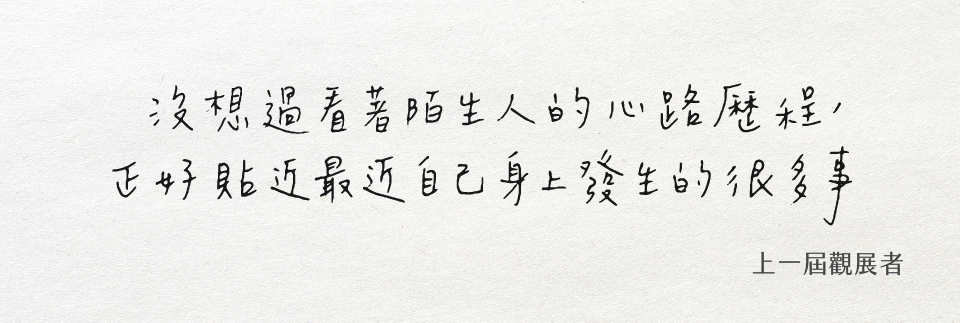 沒想過看著陌生人的心路歷程，
正好貼近最近自己身上發生的很多事
上一屆觀展者